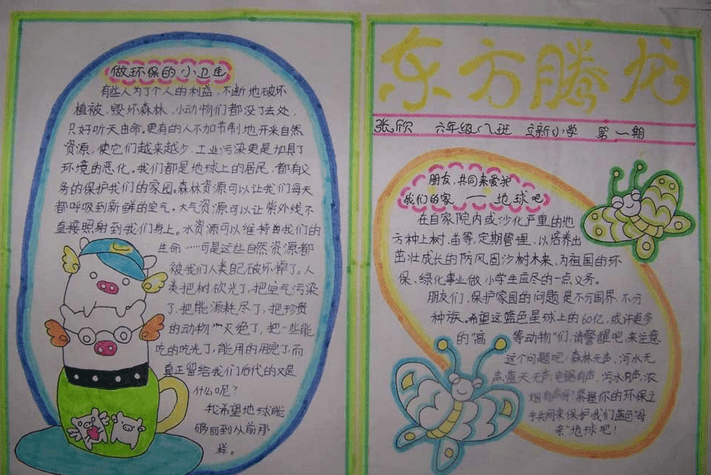 做环保的小卫生
有些人为了个人的利益，不断地破坏
植被，毁坏森林，小动物们都没了去处，
只好听天由命。更有的人不加节制地开采自然
资源，使它们越来越少。工业污染更是加具了
环境的恶化。我们都是地球上的居民，都有义
务的保护我们的家园。森林资源可以让我们每天
都呼吸到新鲜的空气。大气资源可以让紫外线不
直接照射到我们身上。水资源可以维持每我们的
生命……可是这些自然资源都
被我们人类自己破坏掉了。人
类把树砍光了，把空气污染
了，把能源耗尽了，把珍贵
的动物灭绝了，把一些能
吃的吃光了，能用的用完了，而
真正留给我们后代的又是
什么呢？
我希望地球能
够回到从前那
样。
东方腾龙
张欣 六年级八班 立新小学 第一期
朋友，共同来爱我
我们的家——地球吧
在自家院内或沙化严重的地
方种上树、苗等，定期管理，以培养出
茁壮成长的防风固沙树木来，为祖国的环
保、绿化事业做小学生应尽的一点义务。
朋友们，保护家园的问题是不分国界，不分
种族。希望这蓝色星球上的60亿，或许更多
的“高等动物”们，请警醒吧，来注意
这个问题吧：森林无声，河水无
声，蓝天无声；电锯有声，污水有声，浓
烟有声啊！紧握你的环保之
手共同来保护我们蓝色“母
亲”地球吧！